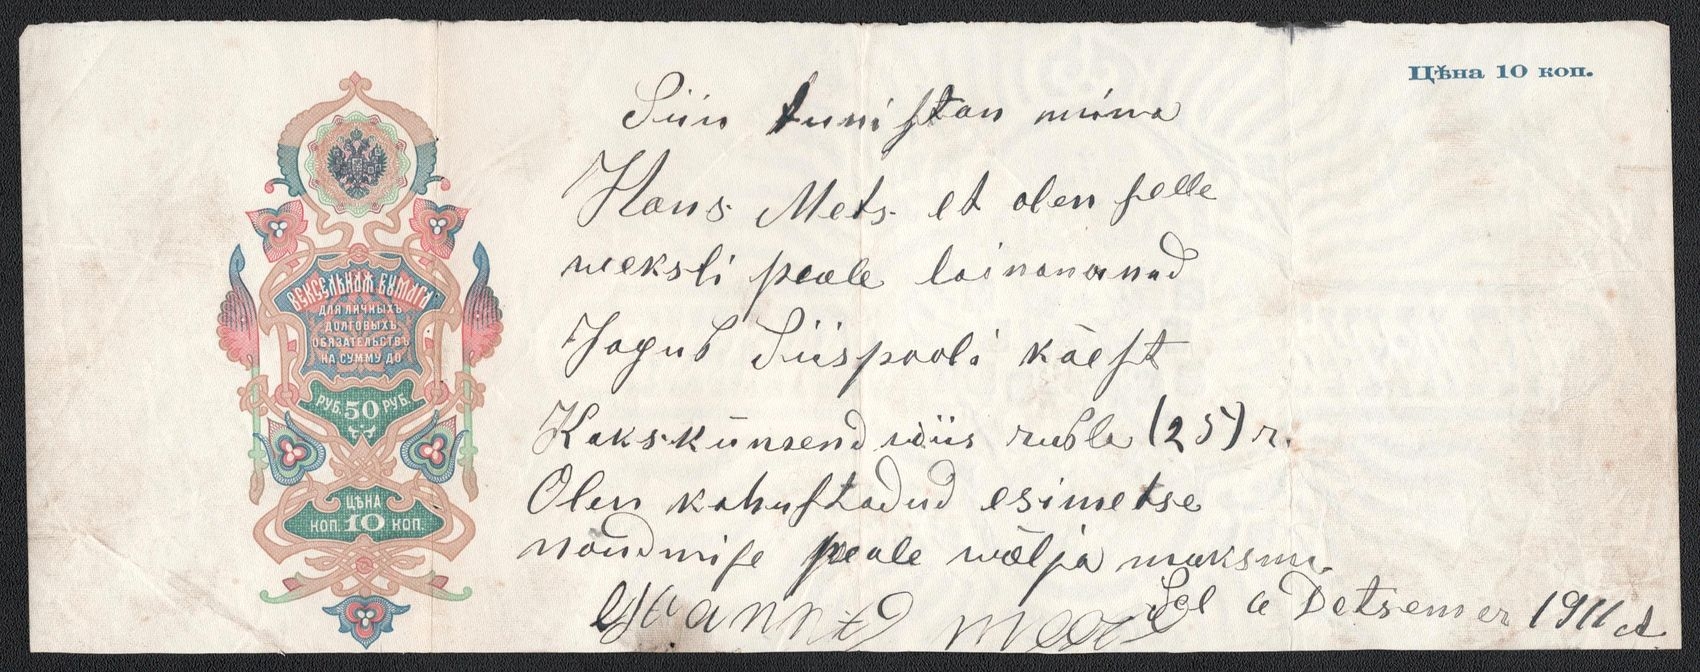 Цѣна 10 коп.
ВЕКСЕЛЬНАЯ БУМАГА
ДЛЯ ЛИЧНЫХЪ
ДОЛГОВЫХЪ
ОБЯЗАТЕЛЬСТВЪ
НА СУММУ ДО
РУБ. 50 РУБ.
ЦѢНА
КОП. 10 КОП.
Siin tunistan mina
Hans Mets et olen selle
weksli peale lainananud
Jagub Siispooli käest
Kakskümend wiis rubla (25) r.
Olen kohustadud esimetse
noudmise peale wälja maksma.
Sel Detsemer 1911 A